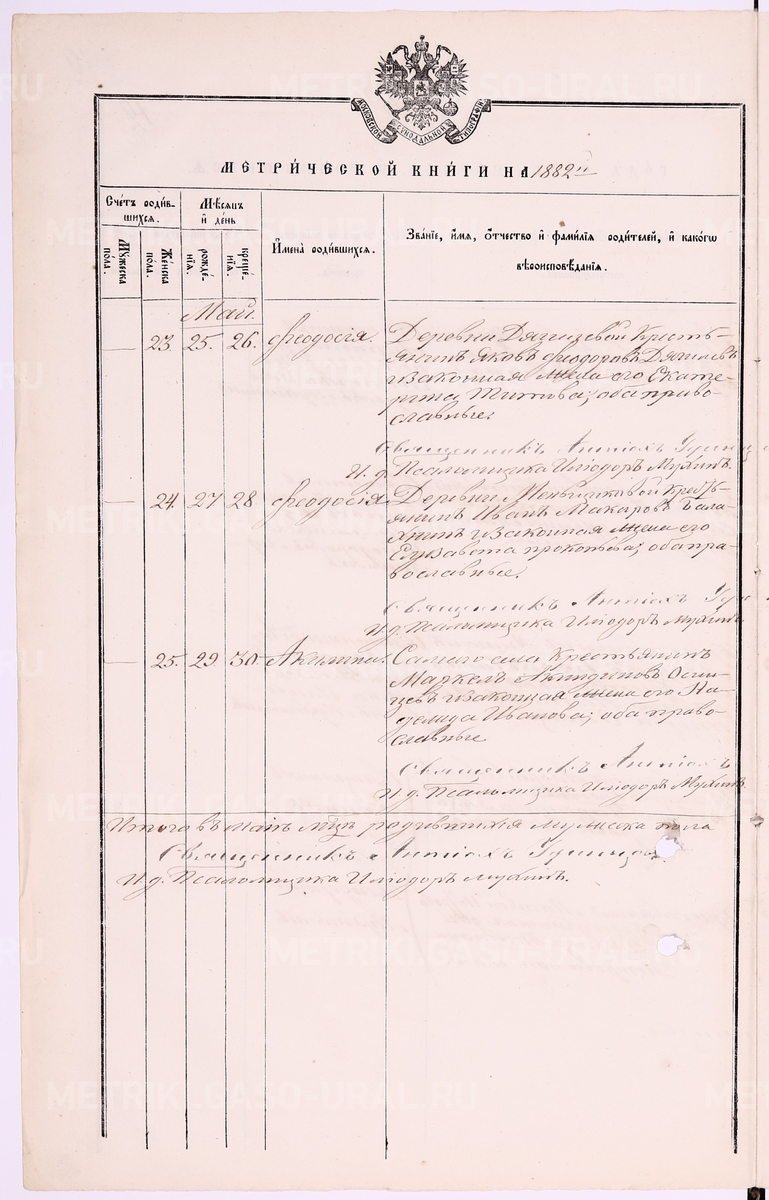 МОСКОВСКОЙ СѴНОДАЛЬНОЙ ТИПОГРАФІИ
МЕТРИЧЕСКОЙ КНИГИ НА 1882 й
Счетъ родившихся.
Мѣсяцъ и день
Имена родившихся.
Званіе, имя, отчество и фамилія родителей, и какогѡ
вѣроисповѣданія.
Мужеска пола.
Женска пола.
рожденія.
крещенія.
Май.
23. 25. 26. Феодосія. Деревни Крестьянинъ
Яковъ Феодоровъ Дягилевъ
и законная жена его Екатерина
Титова; оба православные.
Священникъ Антіохъ
И. д. Псаломщика Иліодоръ Мухинъ.
24. 27 28 Феодосія Деревни Меньшиковой Крестьянинъ
Иванъ Макаровъ Балахнинъ
и законная жена его
Елизавета Прокопьева; оба православные.
Священникъ Антіохъ
И. д. Псаломщика Иліодоръ Мухинъ.
25. 29 30. Акилина. Самого села Крестьянинъ
Маркелъ Акиндиновъ
и законная жена его Надежда
Иванова; оба православные
Священникъ Антіохъ
И. д. Псаломщика Иліодоръ Мухинъ.
Итого въ маѣ мцѣ родившихся мужеска пола
Священникъ Антіохъ Удинцовъ.
И. д. Псаломщика Иліодоръ Мухинъ.
METRIKI.GASO-URAL.RU